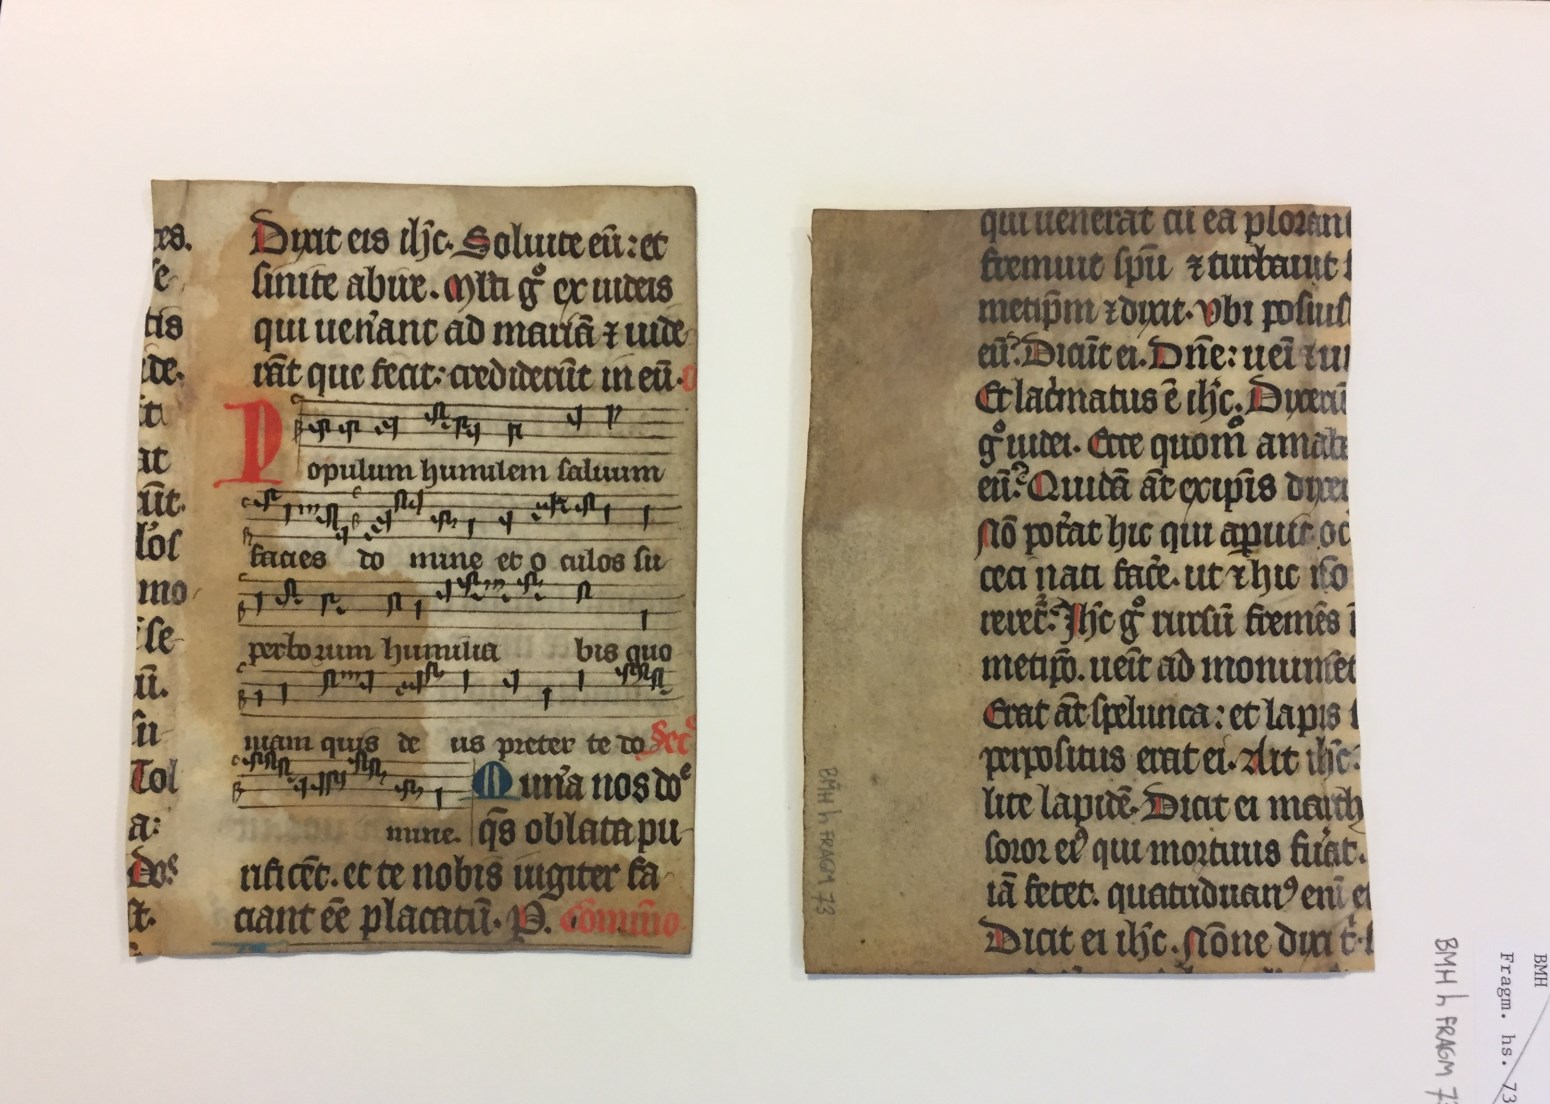 tis
at
mo
Tol
a:
Dixit eis ih̄c. Soluite eū: et
sinite abire. Ml̄ti gͦ ex iudeis
qui uen̄ant ad mariā ⁊ uide-
rāt que fecit: crediderūt in eū.
Populum humilem saluum
facies do mine et o culos su-
perborum humilia bis quo
niam quis de us preter te do Secͦ
mine.
Mun̄a nos doᵉ
q̄s oblata pu-
rificēt. et te nobis iugiter fa-
ciant eē placatū. P. Comūio.
qui uenerāt cū ea plorant
fremuit spū ⁊ turbauit
metip̄m ⁊ dixit. Vbi posuis
eū? Dicūt ei. Dn̄e: ueni ⁊ ui
Et lac̄matus ē ih̄c. Dixerū
gͦ iudei. Ecce quomͦ amab
eū? Quidā āt ex ip̄is dixe
Nō pot̄at hic qui apuit oc
ceci nati fac̄e. ut ⁊ hic nō
reret̄? Ih̄c gͦ rursū fremēs ī
metip̄o. ueīt ad monumēt
Erat āt spelunca: et lapis
perpositus erat ei. Ait ih̄c.
lite lapidē. Dicit ei marth
soror eiꝰ qui mortuus fūat.
iā fetet. quatriduanꝰ eni e
Dicit ei ih̄c. Nōne dixi t̄.
BMH h FRAGM 73
BMH h FRAGM 73
BMH
Fragm. hs. 73